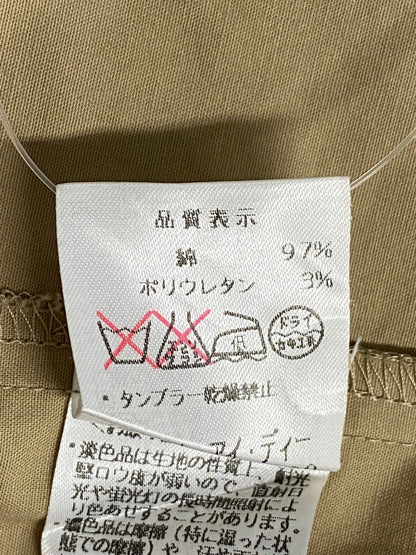 品質表示
綿 97%
ポリウレタン 3%
エンソサラシ
低
ドライ
・タンブラー乾燥禁止
アイ・ディー
・淡色品は生地の性質上、耐光
堅ロウ度が弱いので、直射日
光や蛍光灯の長時間照射によ
り色あせすることがあります。
・濃色品は摩擦（特に湿った状
態での摩擦）や